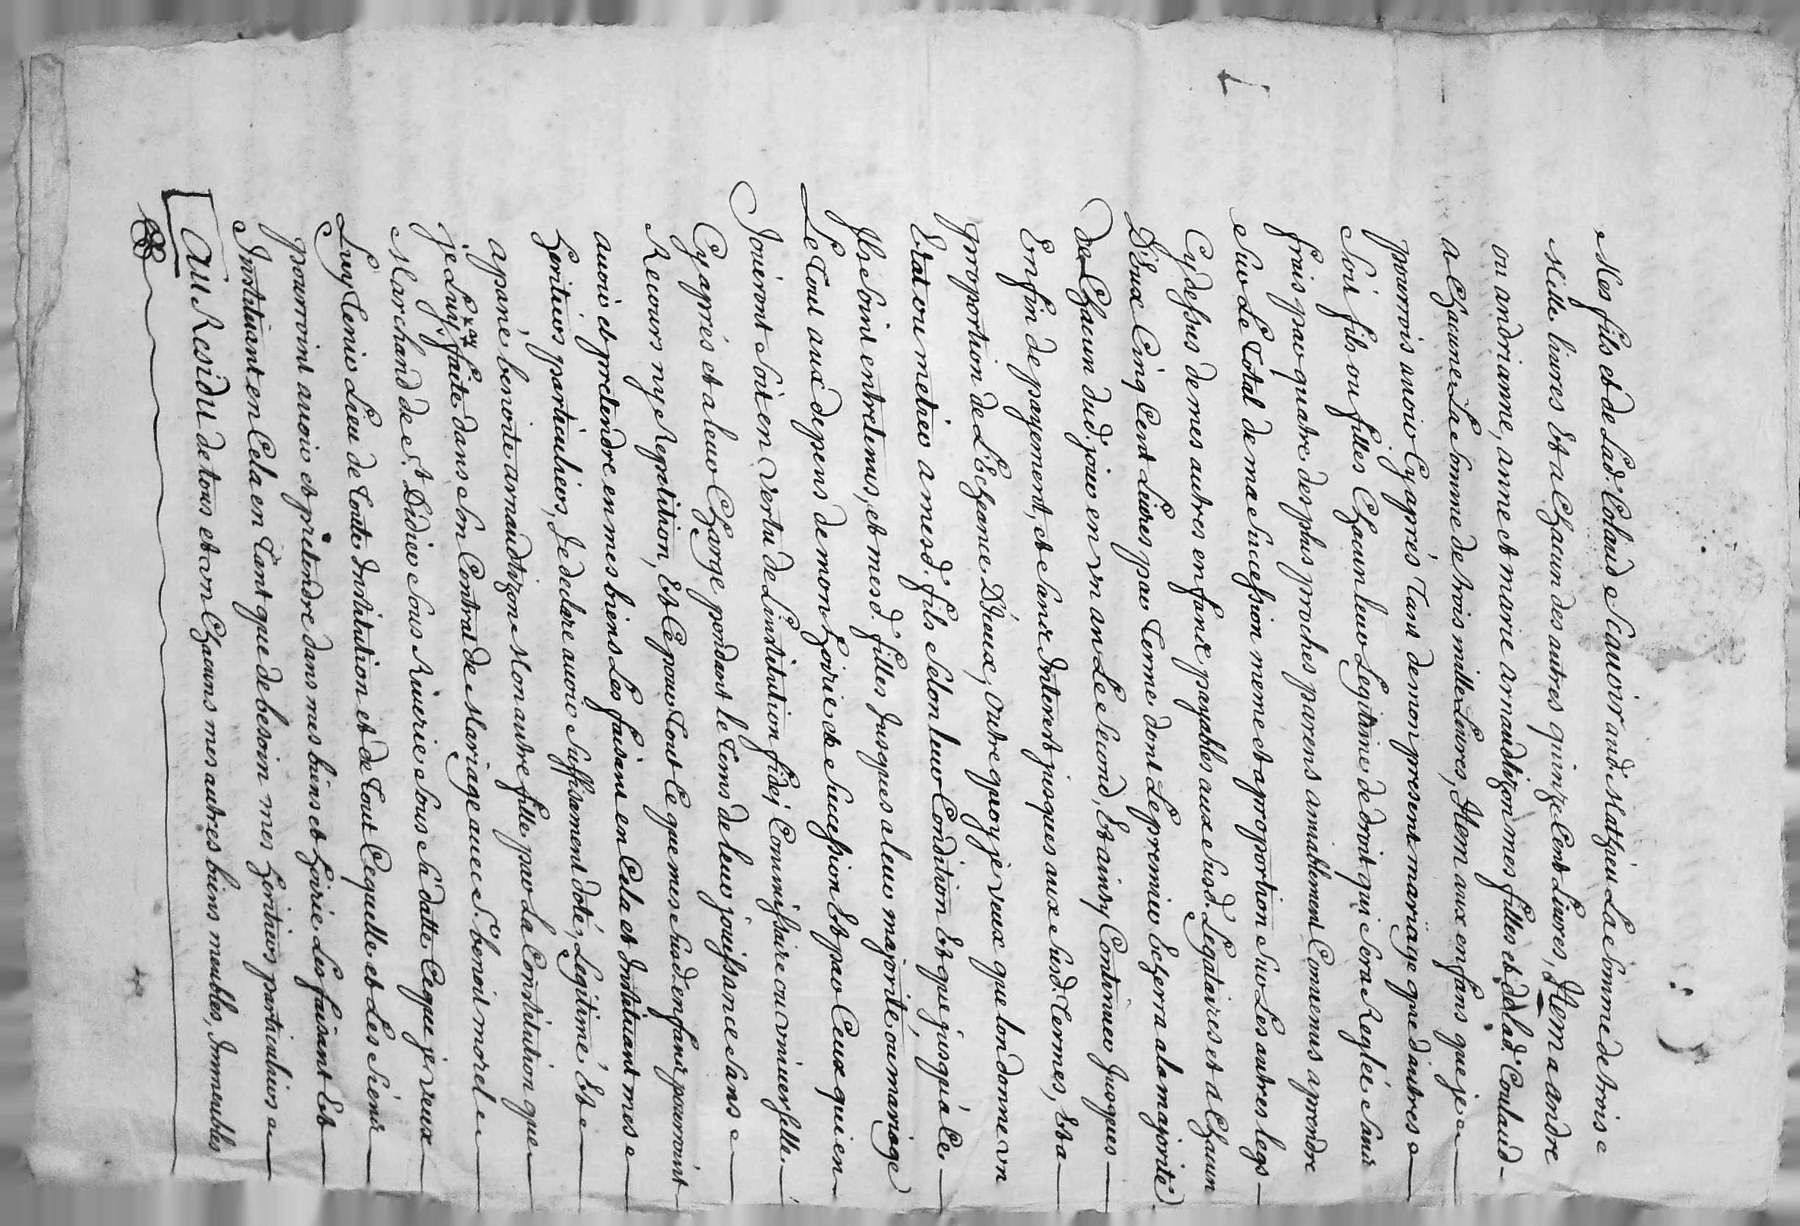 Mes fils et de Lad. Coulaud Scauoir aud. Mathieu La Somme de trois
Mille liures Et a Chacun des autres quinze Cent Liures, Item a andré
ou andrianne, anne et marie arnaudtizon mes filles et de lad. Coulaud
a Chacune La Somme de trois mille Liures, Item aux enfans que je
pourrois auoir Cy aprés Tant de mon present mariage que d'autres
Soit fils ou filles Chacun leur Legitime de droit qui Sera Reglée Sans
frais par quatre des plus proches parens amiablement Conuenus a prendre
Sur Le Total de ma Sucession meme et a proportion Sur Les autres legs
Cy dessus de mes autres enfans payables aux Susd. Legataires et a Chacun
D'Eux Cinq Cent Liures par Terme dont Le premier Echerra a la majorité
de Chacun dud. jour en vn an Le Second, Et ainsy Continuer Jusques
En fin de payement, et Sans Interest jusques aux Susd. Termes, Et a
proportion de L'Echeance D'Iceux, outre quoy je veux que lon donne vn
Etat ou metier a mesd. fils Selon leur Condition Et que jusqu'a Ce
Ils Soint entretenus, et mesd. filles Jusques a leur majorité ou mariage
Le Tout aux depens de mon hoirie et Sucession Et par Ceux qui en
Jouiront Soit en vertu de Linstitution fidej Commissaire ou vniuerselle
Cy aprés et a leur Charge pendant le Tems de leur jouissance Sans
Recours ny Repetition, Et Ce pour Tout Ce que mes Susd. enfans pourroint
auoir et pretendre en mes biens Les faisant en Cela et Instituant mes
heritiers particuliers, Je declare auoir Suffisament doté, Legitimé Et
apané benoite arnaudtizon Mon autre fille par La Constitution que
je Luy ay faite dans Son Contrat de Mariage auec Sr. benoit morel
Marchand de St. Didier Sous Riuerie Sous Sa datte Ceque je veux
Luy Tenir Lieu de Toute Institution et de Tout Cequelle et Les Siens
pourroint auoir et pretendre dans mes biens et hoirie Les faisant Et
Instituant en Cela en Tant que de besoin mes heritiers particuliers
AU ResidU de tous et vn Chacuns mes autres biens meubles, Immeubles